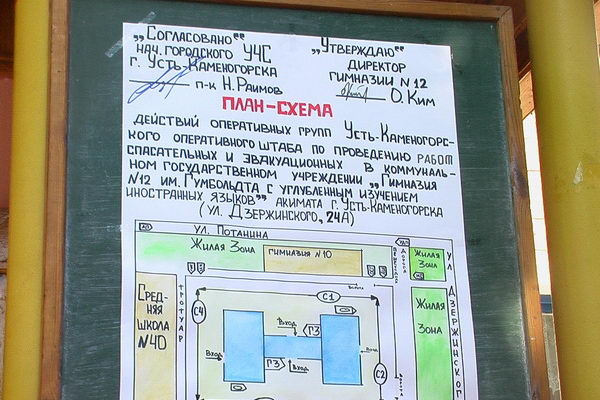 „Согласовано“
нач. городского УЧС
г. Усть-Каменогорска
п-к Н.Раимов
„Утверждаю“
директор
гимназии N 12
О.Ким
ПЛАН-СХЕМА
действий оперативных групп Усть-Каменогорс-
кого оперативного штаба по проведению работ
спасательных и эвакуационных в коммуналь-
ном государственном учреждении „Гимназия
N12 им. Гумбольдта с углубленным изучением
иностранных языков“ акимата г. Усть-Каменогорска
(ул. Дзержинского, 24А)
ул. Потанина
Жилая Зона
гимназия N10
Жилая
Зона
Сред-
няя
школа
N40
тротуар
С1
С4
С2
Вход
Вход
Вход
Вход
ГЗ
ГЗ
Жилая
Зона
ул Дзержинског